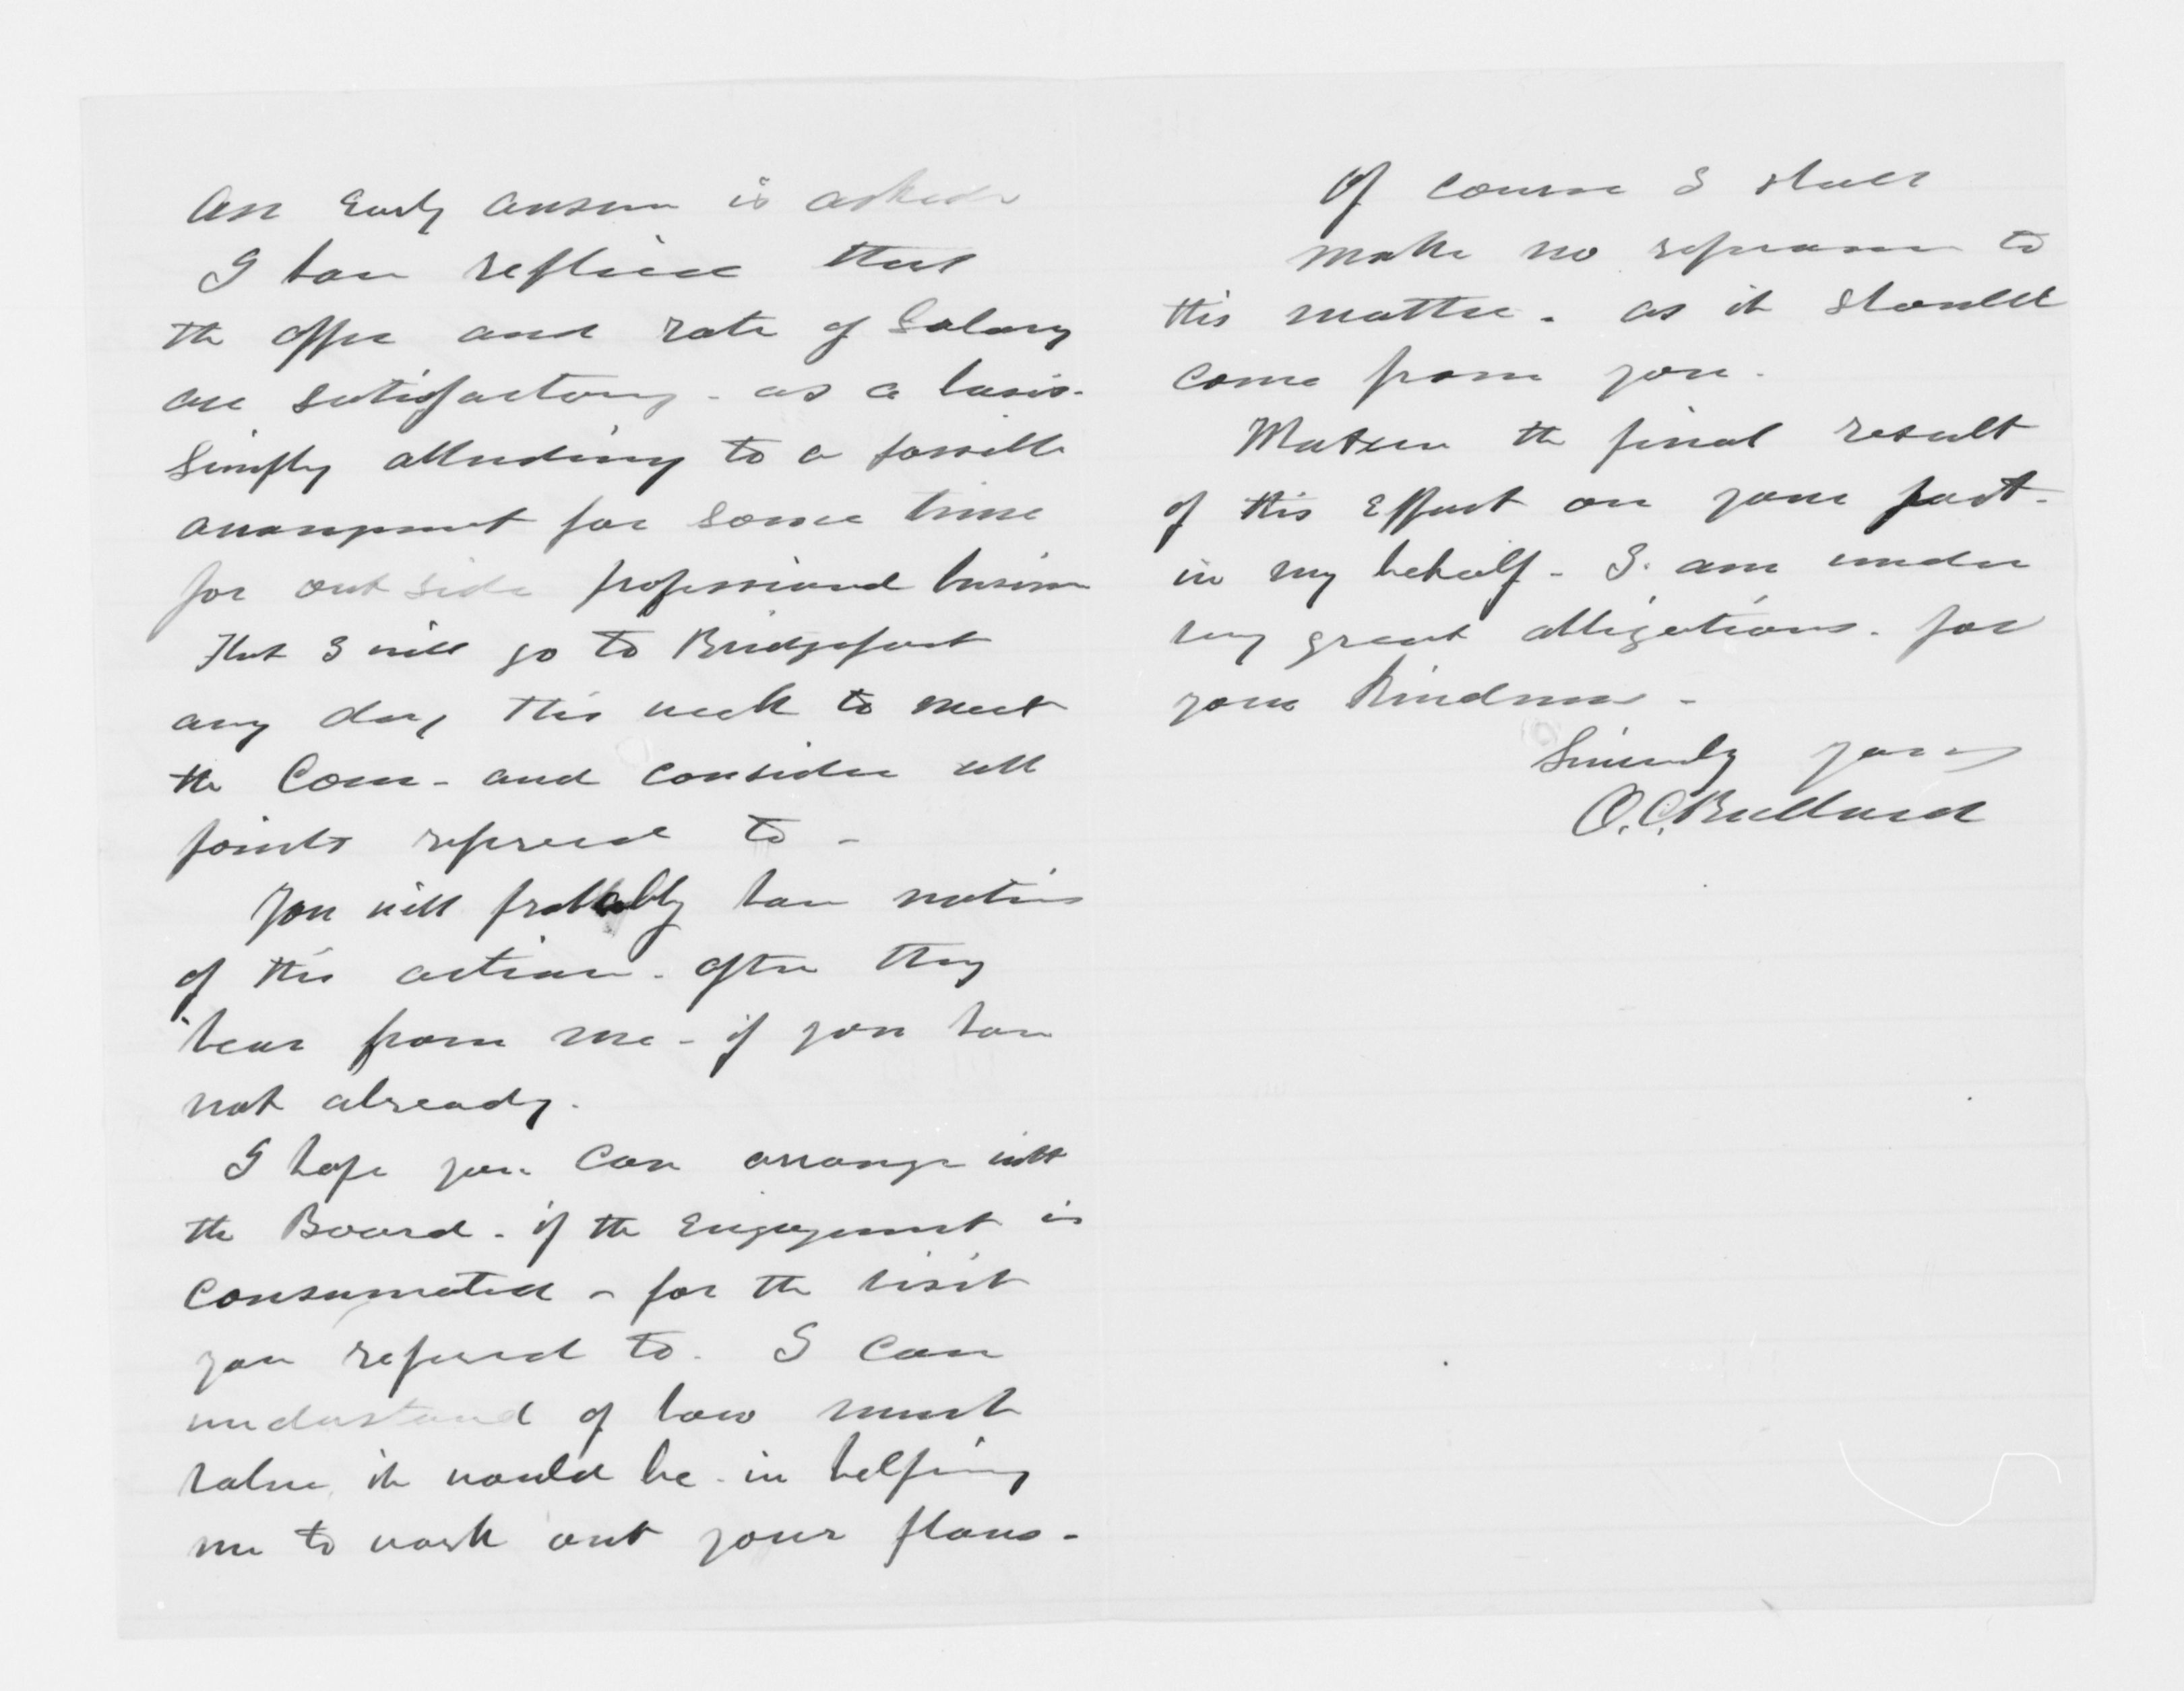 An Early answer is asked
I have replied that
the offer and rate of Salary
are satisfactory - as a basis -
Simply alluding to a possible
arrangement for some time
for outside professional business
That I will go to Bridgeport
any day this week to meet
the Com - and consider all
points referred to -
You will probably have notice
of this action - after they
hear from me - if you have
not already.
I hope you can arrange with
the Board - if the Engagement is
Consumated - for the visit
you referred to. I can
understand of how much
value it would be - in helping
me to work out your plans -
Of course I shall
make no reference to
this matter - as it should
come from you.
the final result
of this Effort on your part -
in my behalf - I am under
very great obligations - for
your Kindness -
Sincerely yours
O.C. Bullard